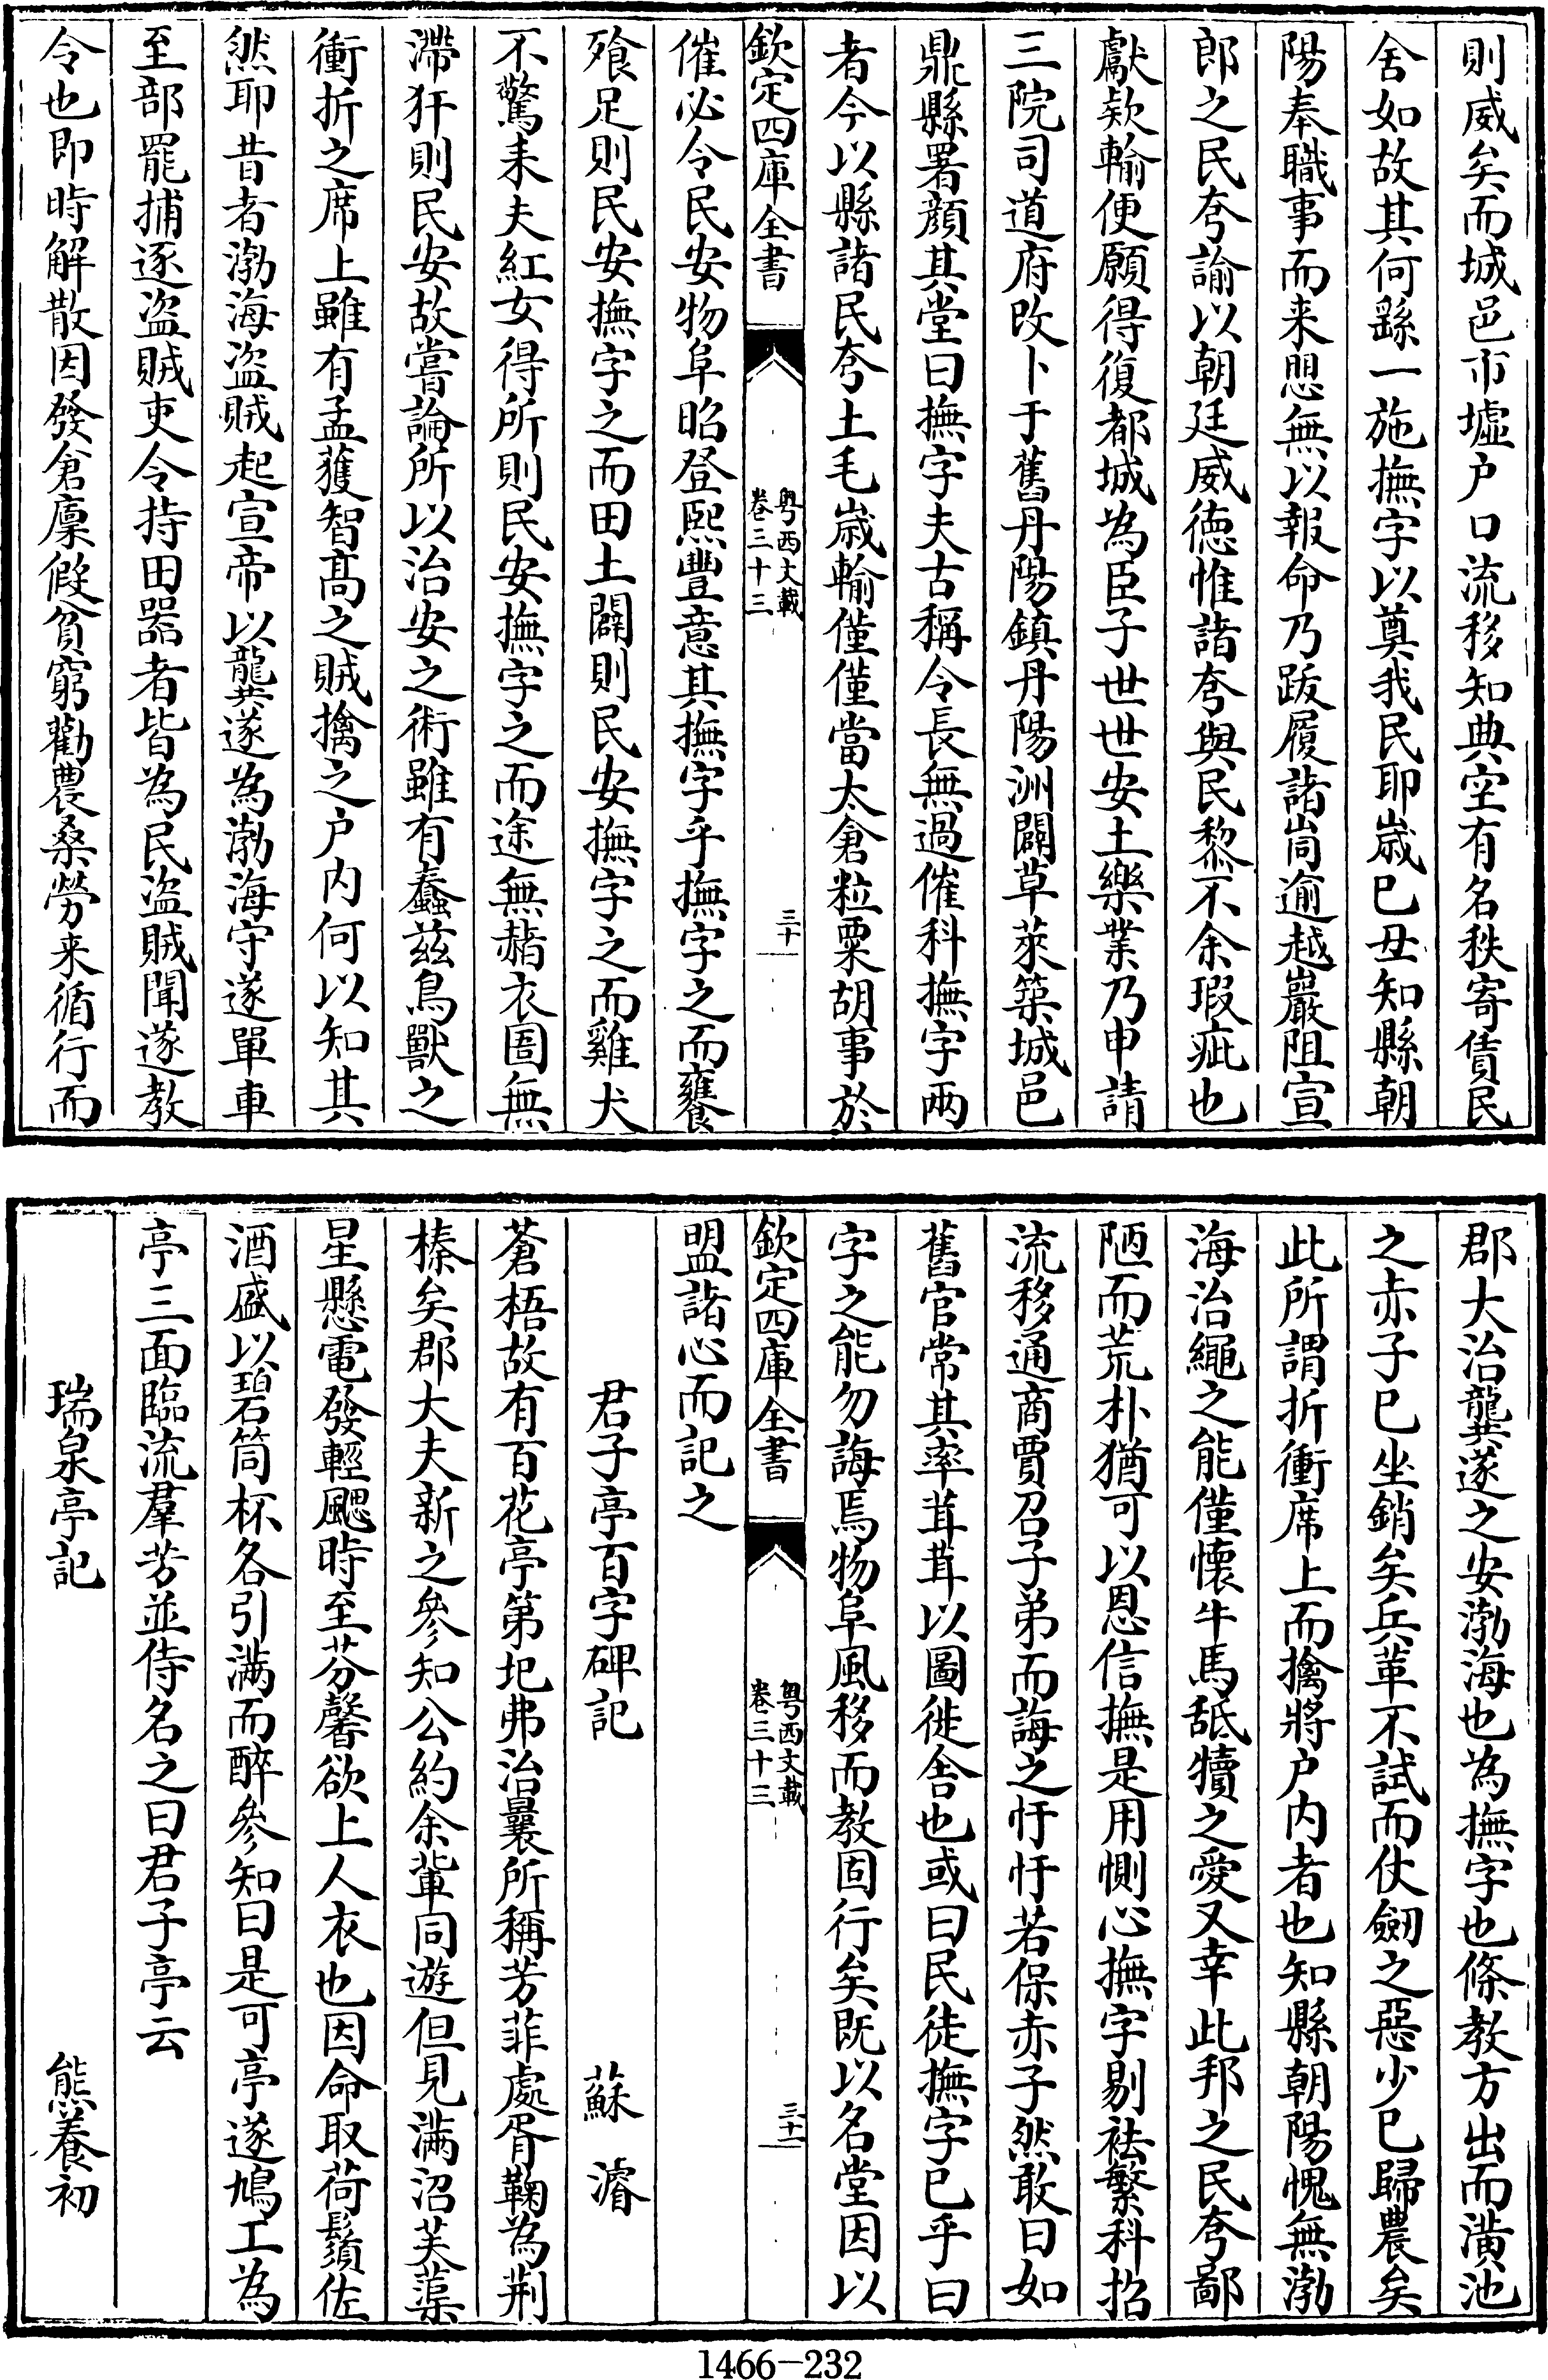 則威矣而城邑市墟户口流移知典空有名秩寄賃民
舍如故其何繇一施撫字以奠我民耶歳已丑知縣朝
陽奉職事而来思無以報命乃跋履諸峝逾越巖阻宣
郎之民夸諭以朝廷威徳惟諸夸與民黎不余瑕疵也
獻欵輸便願得復都城為臣子世世安土樂業乃申請
三院司道府改卜于舊丹陽鎮丹陽洲闢草萊築城邑
鼎縣署顔其堂曰撫字夫古稱令長無過催科撫字兩
者今以縣諸民夸土毛歳輸僅僅當太倉粒粟胡事於
欽定四庫全書
粤西文載
卷三十三
三十
催必令民安物阜昭登熙豐意其撫字乎撫字之而饔
飱足則民安撫字之而田土闢則民安撫字之而雞犬
不驚耒夫紅女得所則民安撫字之而途無赭衣圄無
滯犴則民安故嘗論所以治安之術雖有蠢兹鳥獸之
衝折之席上雖有孟獲智高之賊擒之户内何以知其
然耶昔者渤海盗賊起宣帝以龔遂為渤海守遂單車
至部罷捕逐盗賊吏令持田器者皆為民盗賊聞遂教
令也即時解散因發倉廩假貧窮勸農桑勞来循行而
郡大治龔遂之安渤海也為撫字也條教方出而潢池
之赤子已坐銷矣兵革不試而仗劒之惡少已歸農矣
此所謂折衝席上而擒將户内者也知縣朝陽愧無渤
海治繩之能僅懐牛馬舐犢之愛又幸此邦之民夸鄙
陋而荒朴猶可以恩信撫是用惻心撫字剔祛繁科招
流移通商賈召子弟而誨之忓忓若保赤子然敢曰如
舊官常其率茸茸以圖徙舎也或曰民徒撫字已乎曰
字之能勿誨焉物阜風移而教固行矣既以名堂因以
欽定四庫全書
粤西文載
卷三十三
三十一
盟諸心而記之
君子亭百字碑記 蘇濬
蒼梧故有百花亭第圯弗治曩所稱芳菲處胥鞠為荆
榛矣郡大夫新之參知公約余軰同遊但見滿沼芙蕖
星懸電發輕颸時至芬馨欲上人衣也因命取荷鬚佐
酒盛以碧筒杯各引滿而醉參知曰是可亭遂鳩工為
亭三面臨流羣芳並侍名之曰君子亭亭云
瑞泉亭記 熊養初
1466-232